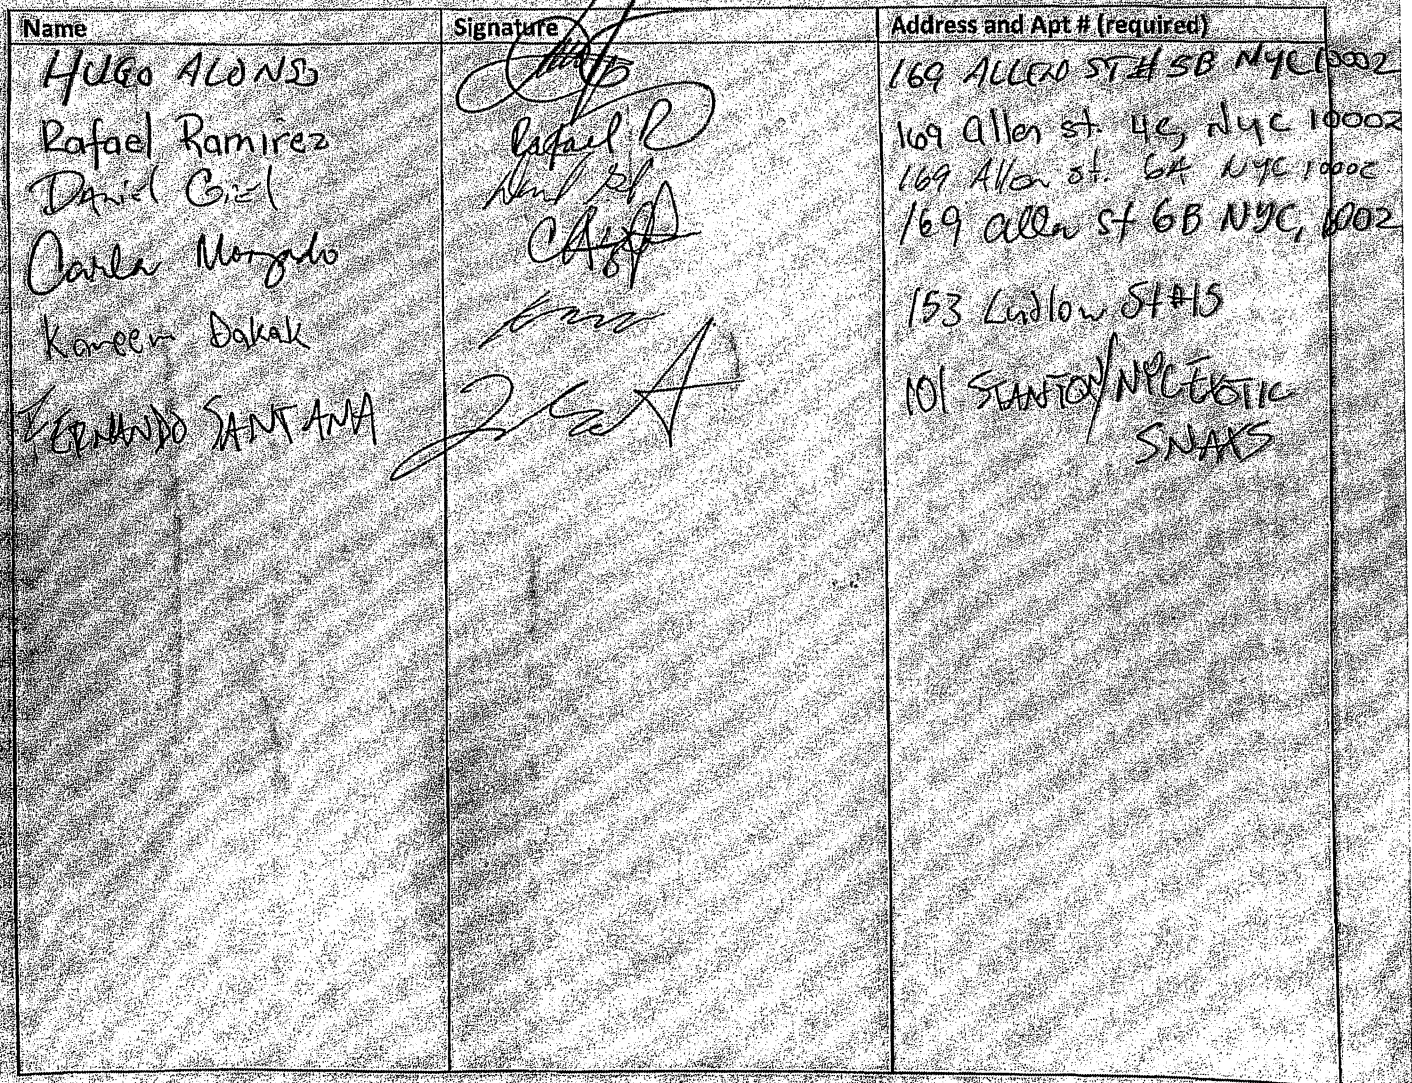 Name Signature Address and Apt # (required)
HUGO ALONSO 169 ALLEN ST # 5B NYC 10002
Rafael Ramirez Rafael R 169 Allen st. 4C, NYC 10002
Daniel 169 Allen st. 6A NYC 10002
Carla Morgado 169 Allen st 6B NYC, 10002
Kareem Dakak 153 Ludlow St #15
FERNANDO SANTANA 101 STANTON/NYC EXOTIC
SNAKS